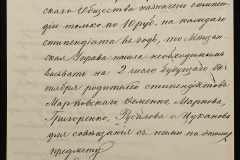 скаго Общества назначено стипен-
дiю только по 10 руб. на каждаго
стипендiата въ годъ, то Мещан
ская Управа нашла необходимымъ
вызвать на 2 число будущаго Ок-
тября родителей стипендiатовъ
Марковскаго Маркова,
Григоренко, Рублева и
для совѣщанiя съ ними по этому
предмету